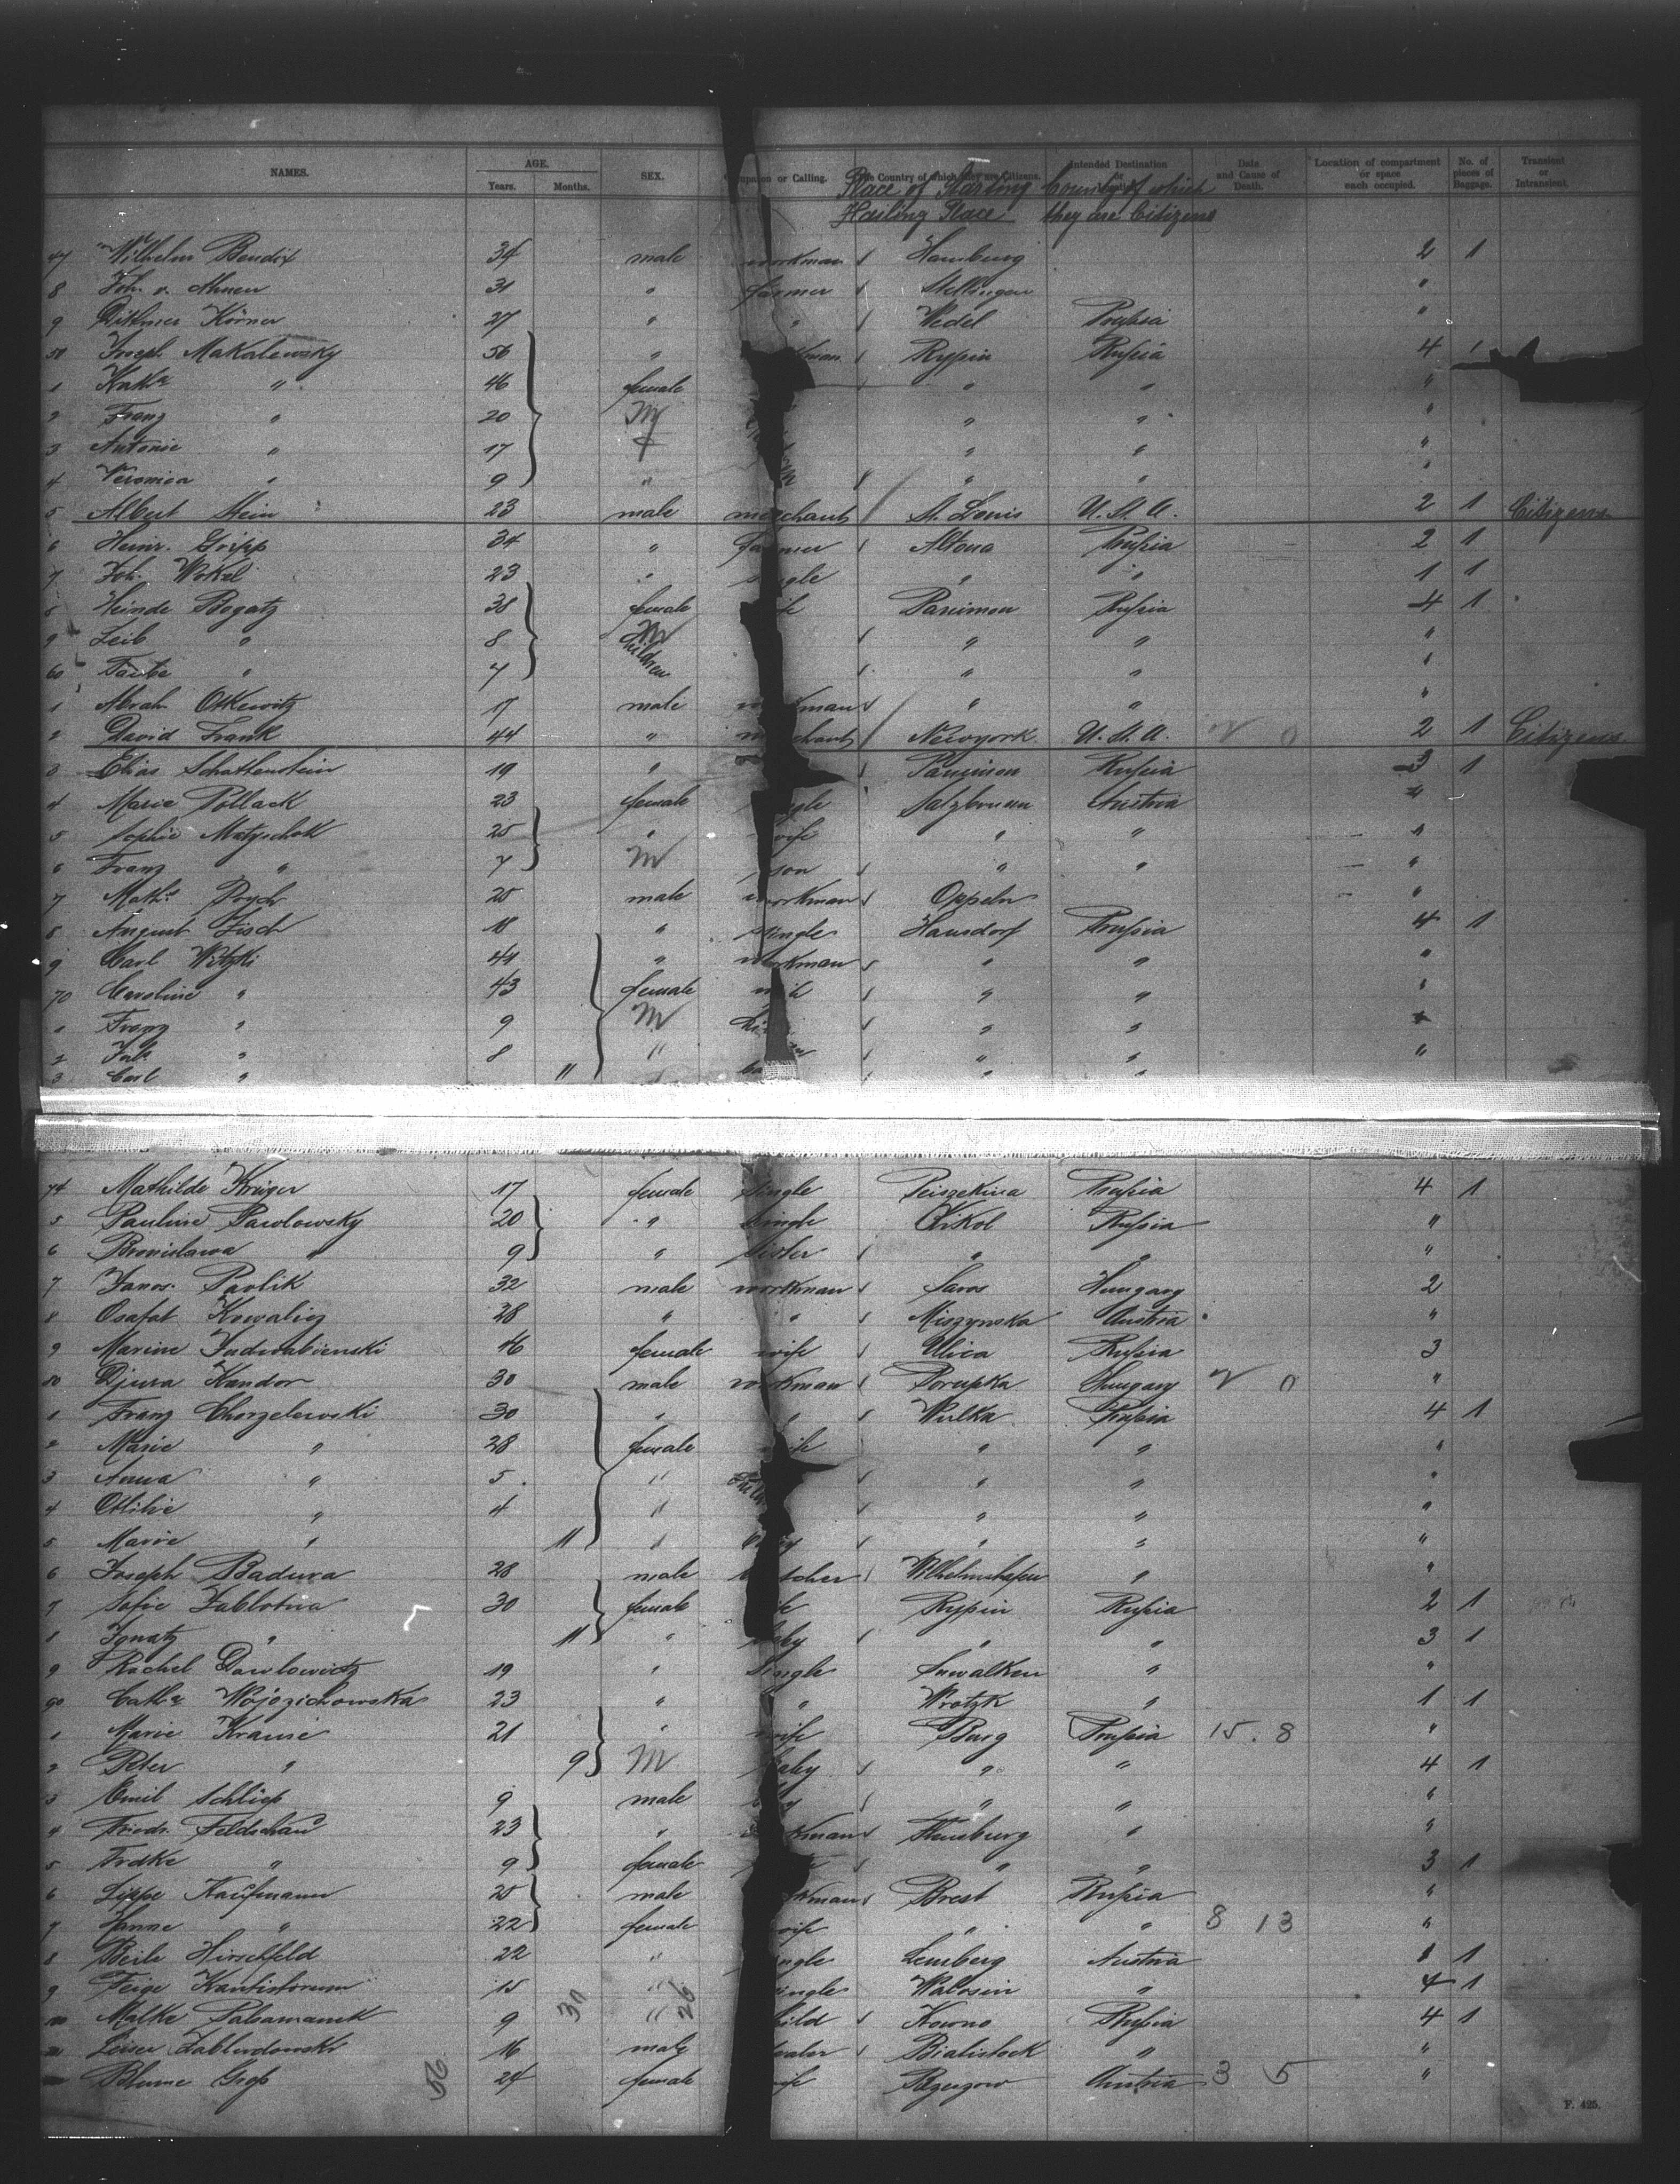 NAMES. AGE. Years. Months. SEX. Occupation or Calling. The Country of which they are Citizens. Intended Destination or Date and Cause of Death. Location of compartment or space each occupied. No. of pieces of Baggage. Transient or Intransient.
Place of Starting County of which
Hailing Place they are Citizens
47 Wilhelm Bendix 34 male workman Hamburg 2 1
8 Joh. v. Ahnen 31 " farmer Stellingen "
9 Dittmer Körner 27 " " Wedel Prussia "
50 Joseph Makalewsky 56 " Rypin Russia 4 1
1 Kath. " 46 female " " "
2 Franz " 20 M " " "
3 Antonie " 17 f " " "
4 Veronica " 9 " " " "
5 Albert Stein 23 male merchant St. Louis U. St. A. 2 1 Citizens
6 Heinr. Gripp 34 " farmer Altona Prussia 2 1
7 Joh. Wokel 23 " single " " 1 1
8 Heinde Bogatz 38 female Russia 4 1
9 Leib " 8 M children " " "
60 Taube " 7 " " "
1 Abrah. Otkewitz 17 male workman " " "
2 David Frank 44 " merchant Newyork U. St. A. 2 1 Citizens
3 Elias Schattenstein 19 " Russia 3 1
4 Marie Pollack 23 female single Salzbrunn Austria "
5 Sophie Matyschok 25 " wife " " "
6 Franz " 7 M son " " "
7 Math. 25 male workman Oppeln "
8 August Fisch 18 " single Hausdorf Prussia 4 1
9 Carl Witzki 44 " workman " " "
70 Caroline " 43 female " " "
1 Franz " 9 M " " "
2 " 8 " " " "
3 Carl " 11 " " "
74 Mathilde Krüger 17 female single Prussia 4 1
5 Pauline Pawlowsky 20 " single Kikol Russia "
6 Bronislawa " 9 " sister " " "
7 Janos. Pavlik 32 male workman Saros Hungary 2
8 Osafat Kowalicz 28 " " Miszynska Austria "
9 Marine 46 female wife Ulica Russia 3
80 Djura Kandor 30 male workman Porupka Hungary "
1 Franz Chorzelewski 30 " " Wulka Prussia 4 1
2 Marie " 28 female wife " " "
3 Anna " 5 " " " "
4 Ottilie " 4 " " " "
5 Marie " 11 " " " "
6 Joseph Badura 28 male Wilhelmshafen " "
7 Sofie Zablotna 30 female Rypin Russia 2 1
8 Ignatz " 11 " baby " " 3 1
9 Rachel Dawlowitz 19 " single Suwalken " "
90 Cath. Wojozichowska 23 " " Wrotzk " 1 1
1 Marie Krause 21 " wife Burg Prussia 15. 8 "
2 Peter " 9 M baby " " 4 1
3 Emil Schliep 9 male " " "
4 Friedr. Feldschau 23 " workman Flensburg " "
5 Frdke " 9 female " " 3 1
6 Lippe Kaufmann 25 male workman Brest Russia "
7 Hanne " 22 female wife " " 8 13 "
8 Beile Hirschfeld 22 " single Lemberg Austria 1 1
9 Feige 15 " single Walosin " 4 1
Malke 9 " child Kowno Russia 4 1
Leiser Zabludowski 16 male Bialistock " "
Blume Gross 24 female wife Austria 3 5 "
30 26
56
F. 425.